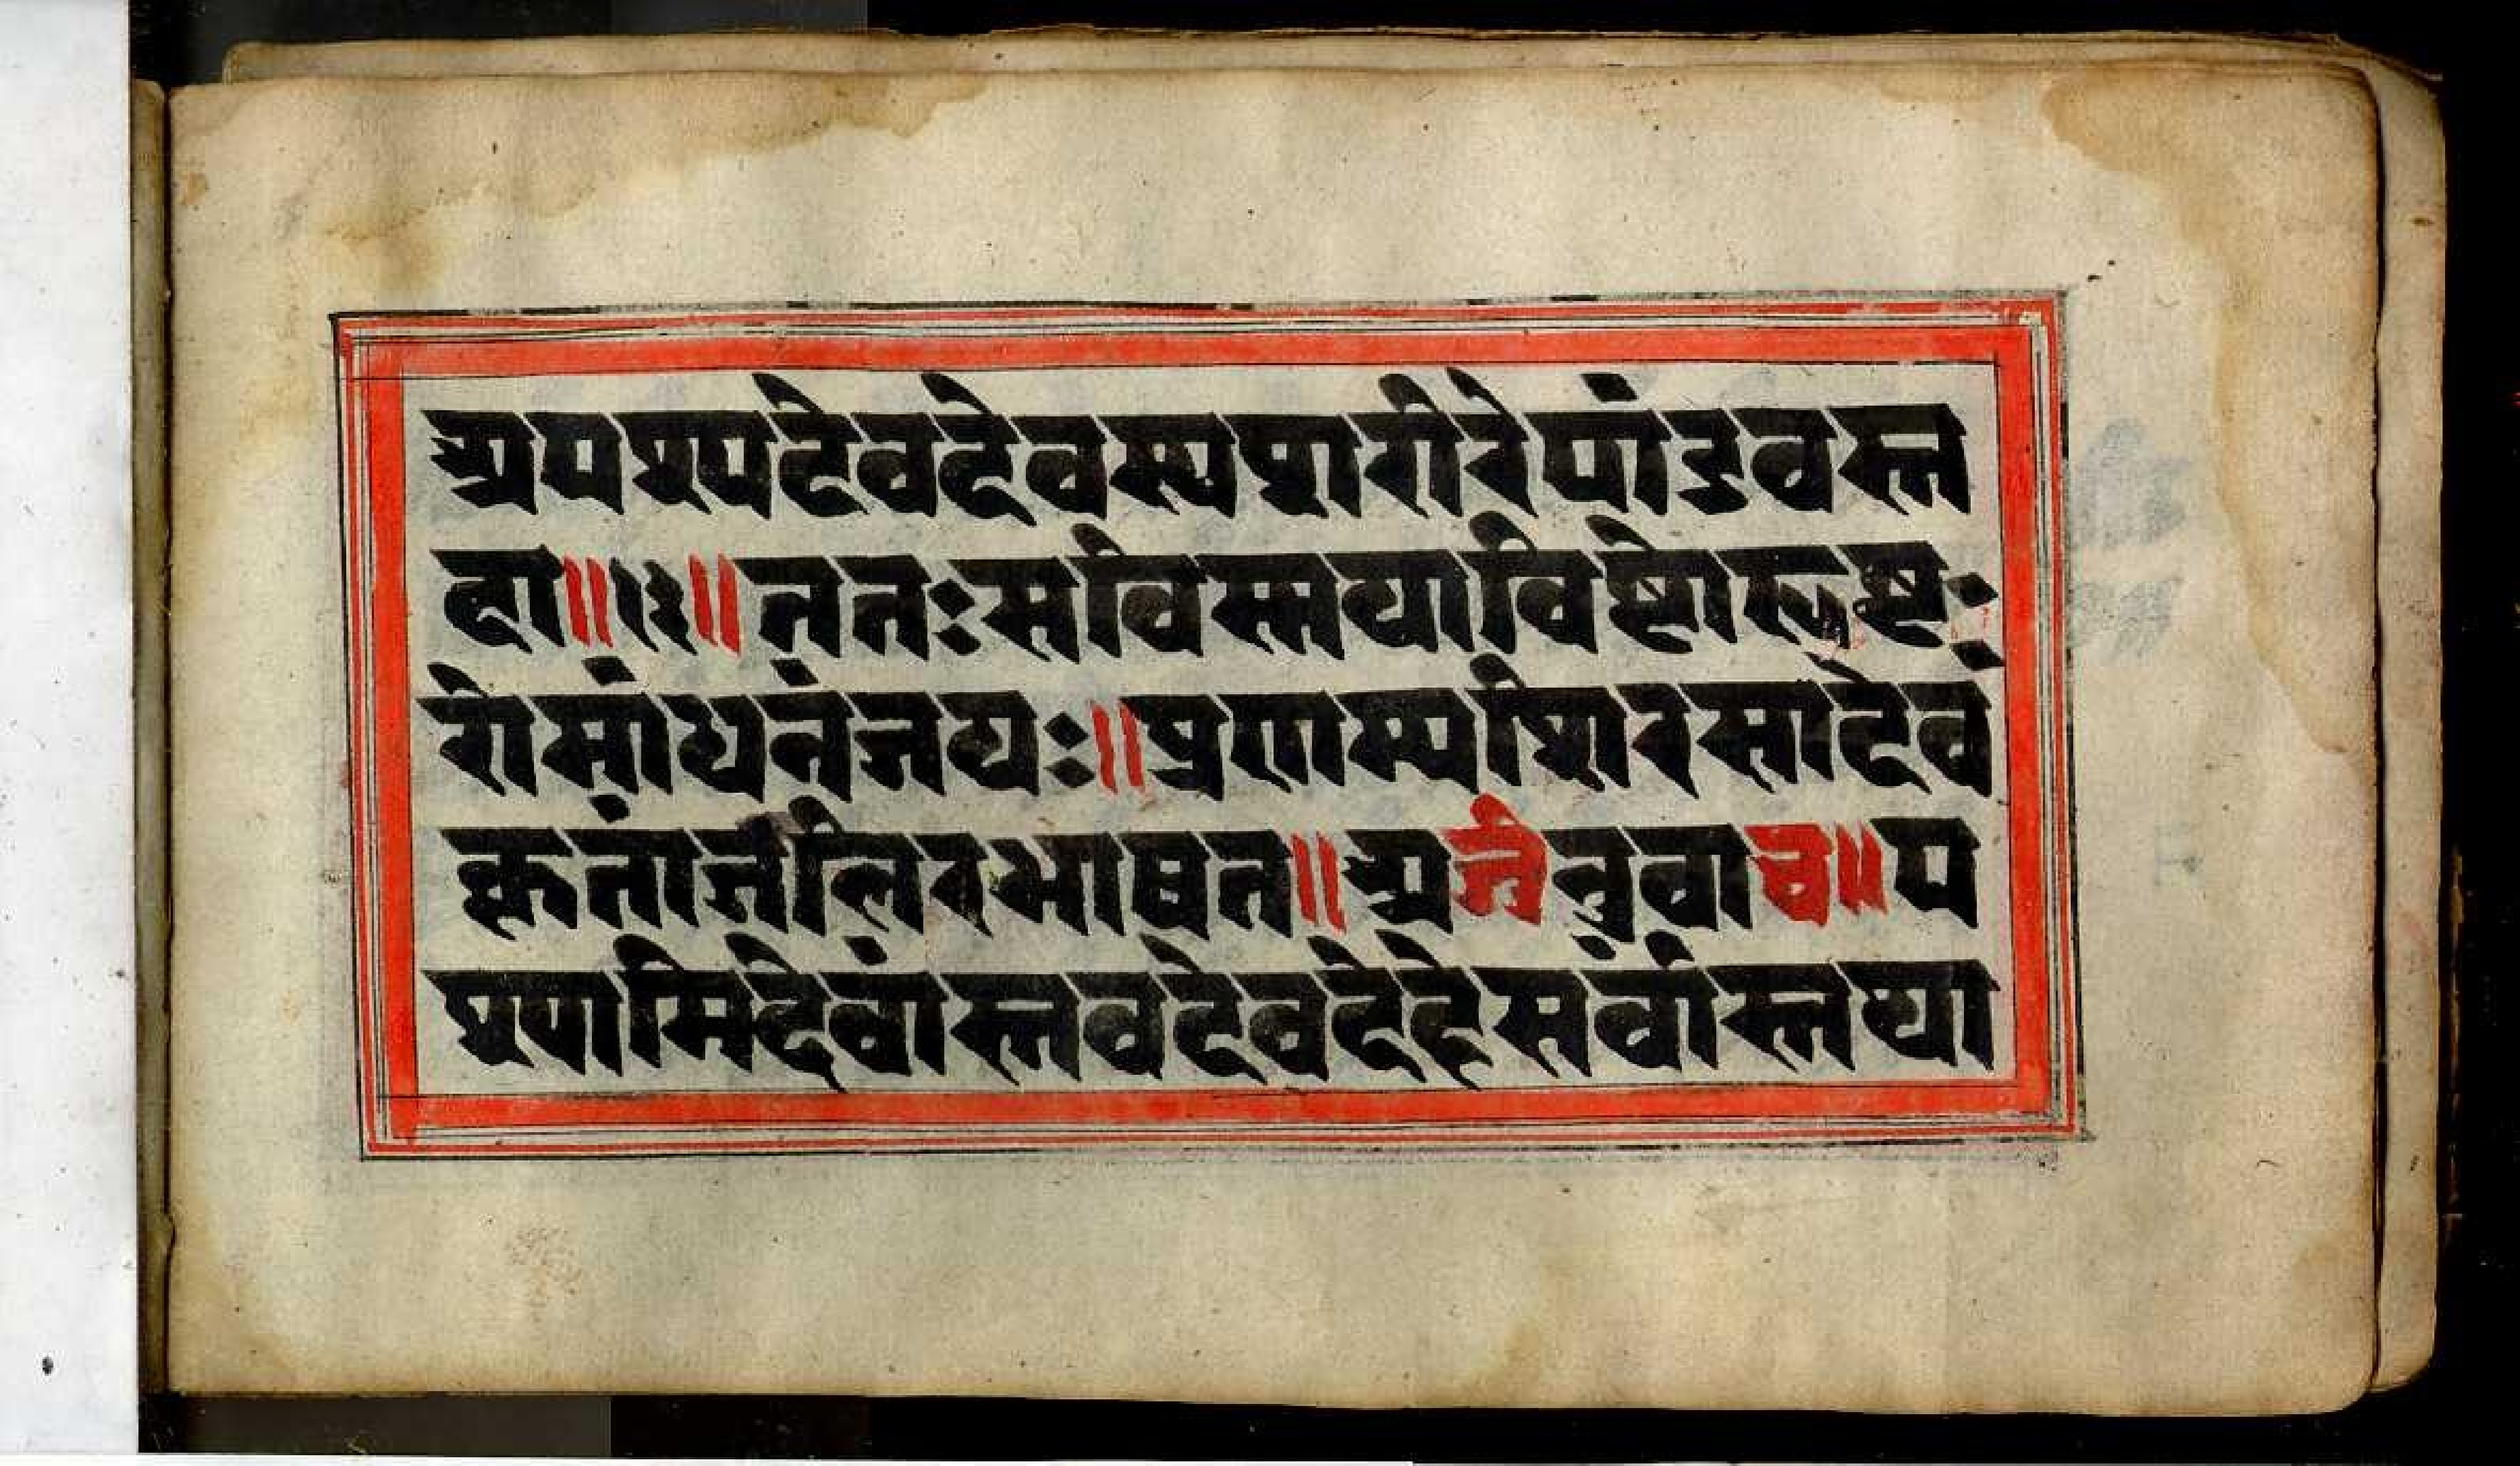 अपश्यद्देवदेवस्य शरीरे पांडवस्त
दा॥१३॥ततः स विस्मयाविष्टो हृष्ट
रोमां धनंजयः॥प्रणम्य शिरसा देवं
कृतांजलिरभाषत॥अर्जुनुवाच॥प
प्रणामि देवांस्तव देव देहे सर्वांस्तथा